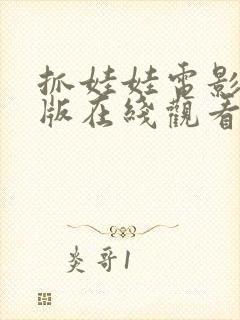 抓娃娃电影
版在綫觀看
炎哥1